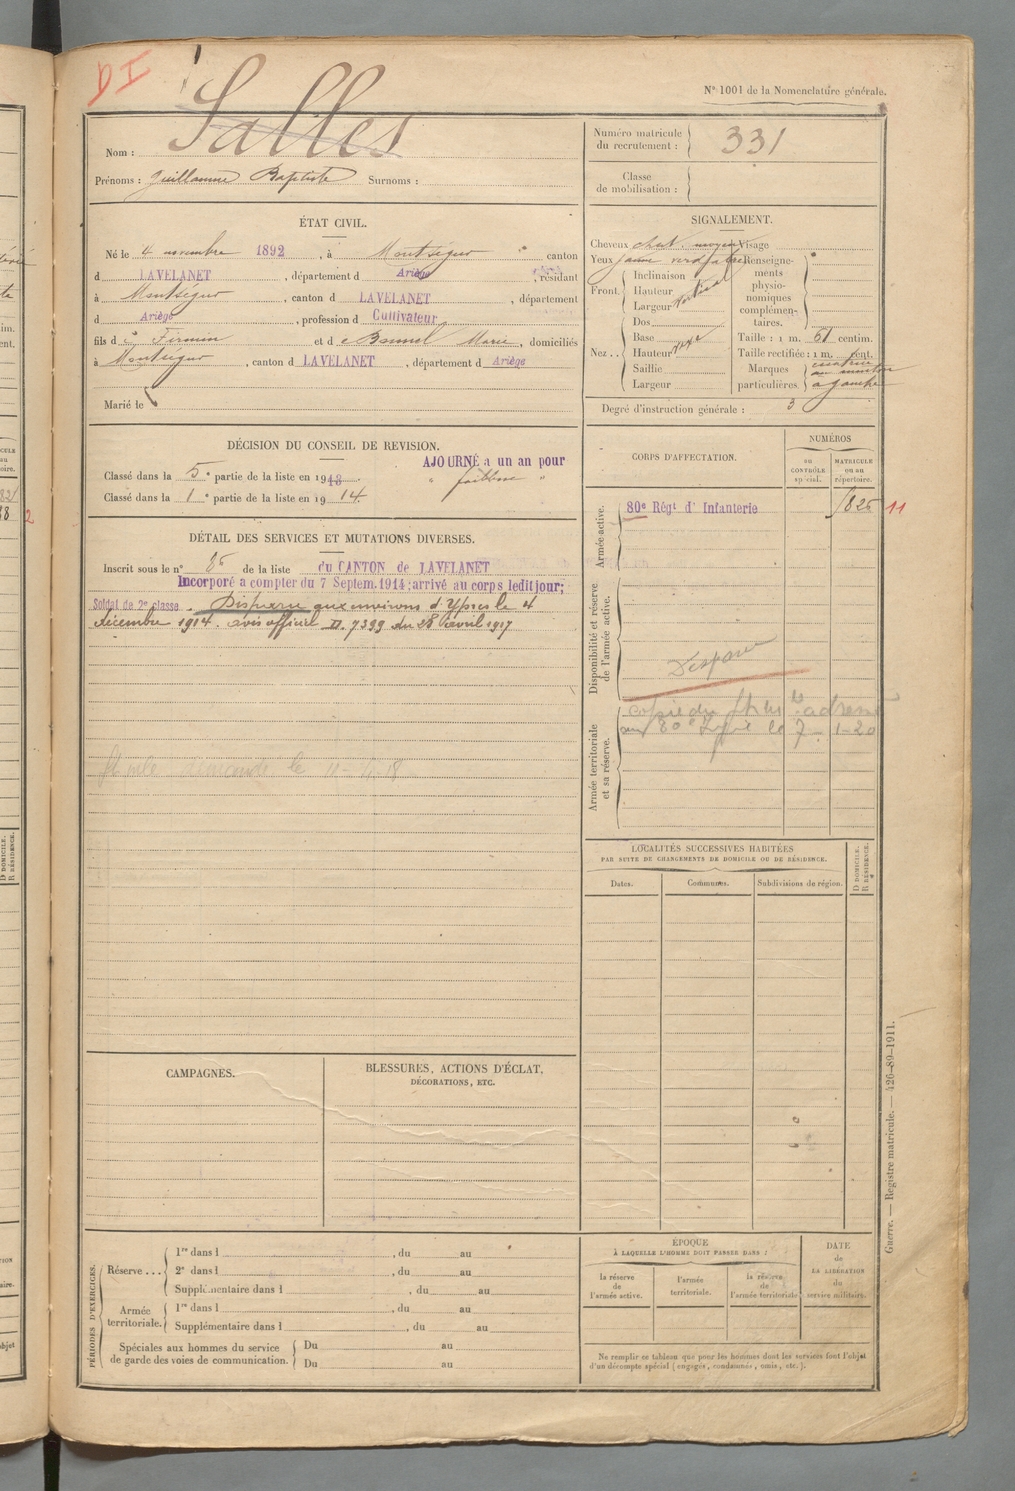 DI
N° 1001 de la Nomenclature générale.
Nom : Salles
Prénoms : Guillaume Baptiste Surnoms :
Numéro matricule du recrutement : 331
Classe de mobilisation :
ÉTAT CIVIL.
Né le 4 novembre 1892, à Montségur canton
d LAVELANET, département d Ariège, résidant
à Montségur, canton d LAVELANET, département
d Ariège, profession de Cultivateur
fils d e Firmin et d e Bonnel Marie, domiciliés
à Montségur, canton d LAVELANET, département d Ariège
Marié le
SIGNALEMENT.
Cheveux chat. moyen Visage
Yeux jaune verdâtre
Front. Inclinaison
Hauteur
Largeur
Nez.. Dos
Base
Hauteur
Saillie
Largeur
Renseignements physionomiques complémentaires.
Taille : 1 m. 61 centim.
Taille rectifiée : 1 m. cent.
Marques particulières. cicatrice au menton à gauche
Degré d'instruction générale : 3
DÉCISION DU CONSEIL DE REVISION.
AJOURNÉ a un an pour
Classé dans la 5e partie de la liste en 1913. " faiblesse "
Classé dans la 1e partie de la liste en 1914
DÉTAIL DES SERVICES ET MUTATIONS DIVERSES.
Inscrit sous le n° de la liste du CANTON de LAVELANET
Incorporé a compter du 7 Septem. 1914; arrivé au corps ledit jour;
Soldat de 2e classe. Disparu aux environs d'Ypres le 4
décembre 1914. avis officiel 7399 du 28 avril 1917
demande le
CORPS D'AFFECTATION.
NUMÉROS
au CONTRÔLE spécial.
MATRICULE ou au répertoire.
Armée active.
80e Régt d'Infanterie 11
Disponibilité et réserve de l'armée active.
Disparu
Armée territoriale et sa réserve.
copie du adressé
au 80e le 7 1-20
LOCALITÉS SUCCESSIVES HABITÉES
PAR SUITE DE CHANGEMENTS DE DOMICILE OU DE RÉSIDENCE.
Dates. Communes. Subdivisions de région.
D DOMICILE. R RÉSIDENCE.
CAMPAGNES.
BLESSURES, ACTIONS D'ÉCLAT,
DÉCORATIONS, ETC.
PÉRIODES D'EXERCICES.
Réserve ... 1re dans l , du au
2e dans l , du au
Supplémentaire dans l , du au
Armée territoriale. 1re dans l , du au
Supplémentaire dans l , du au
Spéciales aux hommes du service de garde des voies de communication. Du au
Du au
ÉPOQUE
À LAQUELLE L'HOMME DOIT PASSER DANS :
la réserve de l'armée active.
l'armée territoriale.
la réserve de l'armée territoriale
DATE de LA LIBÉRATION du service militaire.
Ne remplir ce tableau que pour les hommes dont les services font l'objet
d'un décompte spécial (engagés, condamnés, omis, etc.).
Guerre. — Registre matricule. — 426-89-1911.